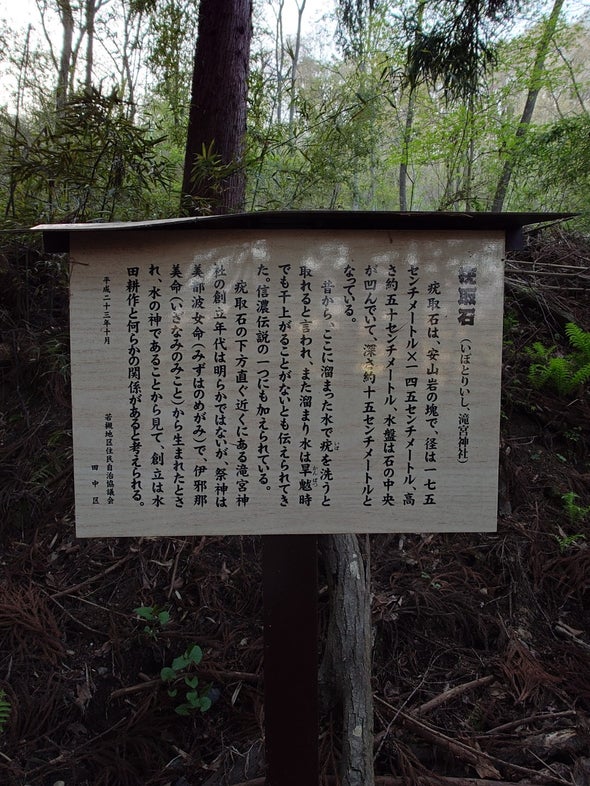 疣取石（いぼとりいし、滝宮神社）
疣取石は、安山岩の塊で、径は一七五
センチメートル×一四五センチメートル、高
さ約五十センチメートル、水盤は石の中央
が凹んでいて、深さ約十五センチメートルと
なっている。
昔から、ここに溜まった水で疣を洗うと
いぼ
取れると言われ、また溜まり水は旱魃時
かんばつ
でも干上がることがないとも伝えられてき
た。信濃伝説の一つにも加えられている。
疣取石の下方直ぐ近くにある滝宮神
社の創立年代は明らかではないが、祭神は
美都波女命（みずはのめがみ）で、伊邪那
美命（いざなみのみこと）から生まれたとさ
れ、水の神であることから見て、創立は水
田耕作と何らかの関係があると考えられる。
平成二十三年十月
若槻地区住民自治協議会
田中区